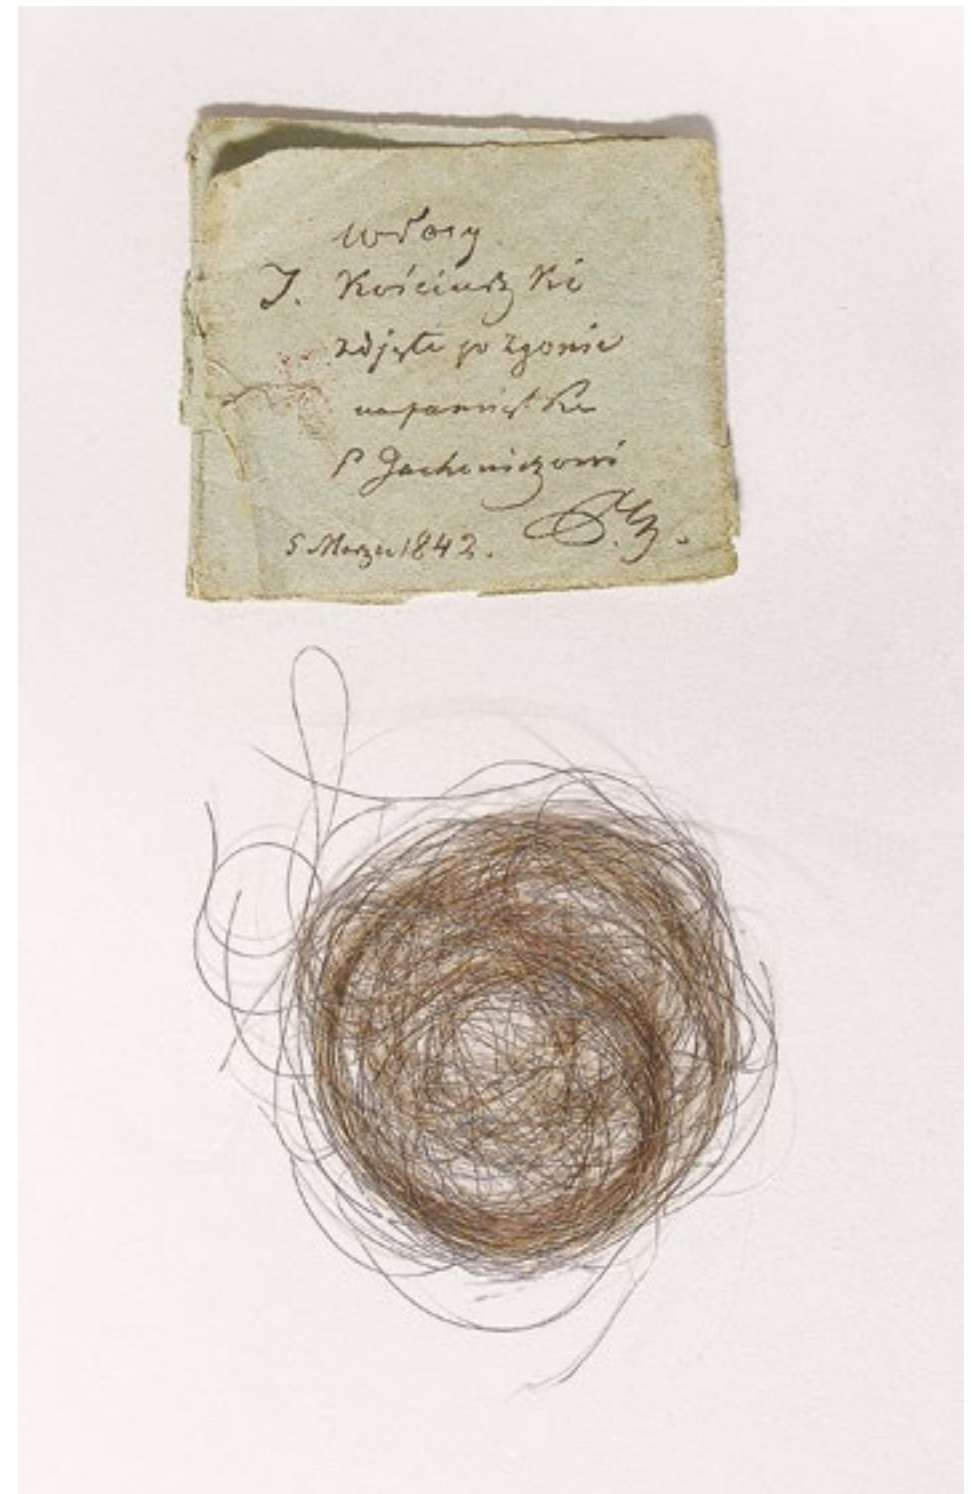 włosy
T. Kościuszki
zdjęte po zgonie
na pamiątkę
P Jachowiczowi
5 Marca 1842.